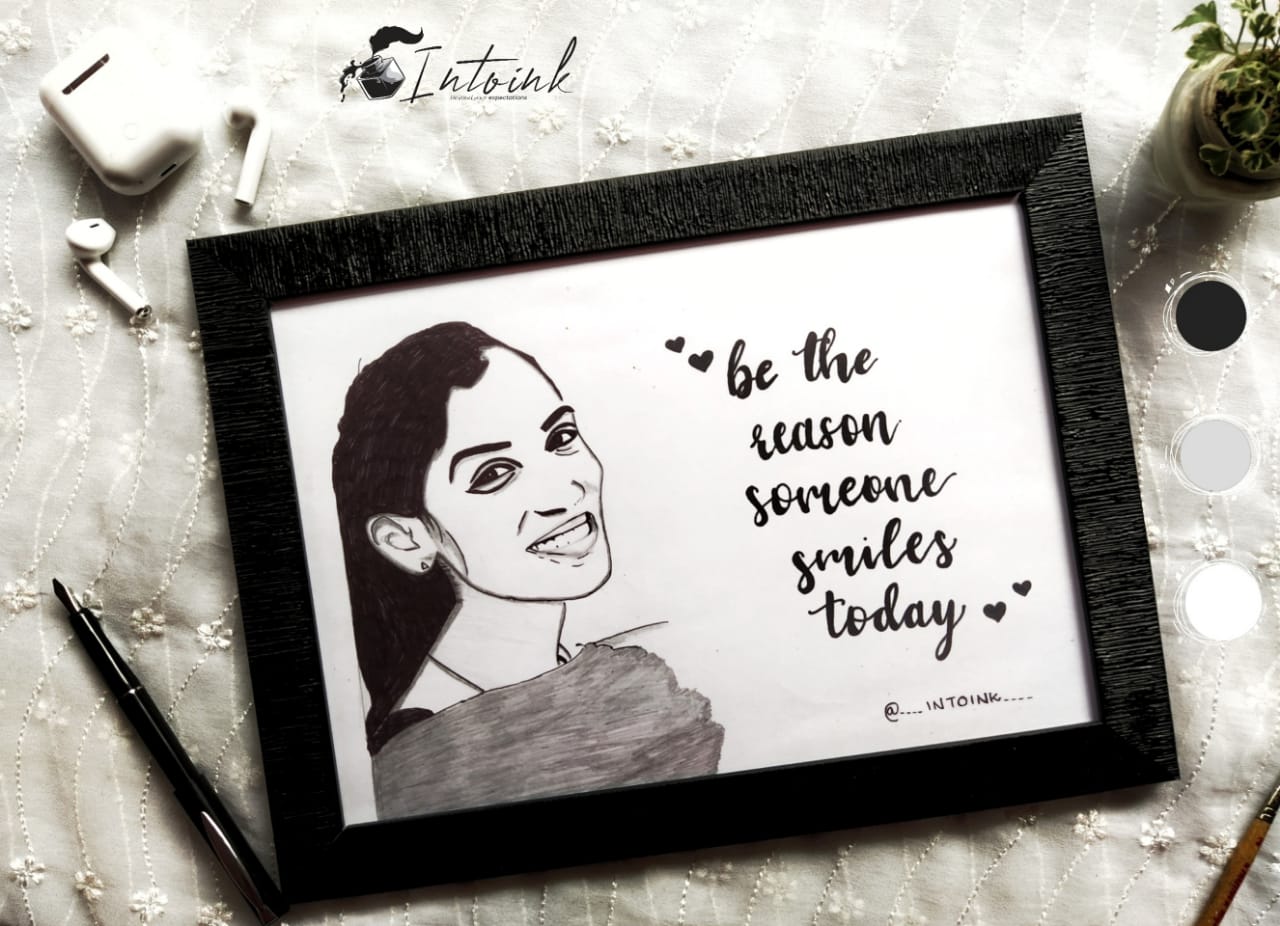 Intoink
Beyond your expectations
be the
reason
someone
smiles
today
@....INTOINK....